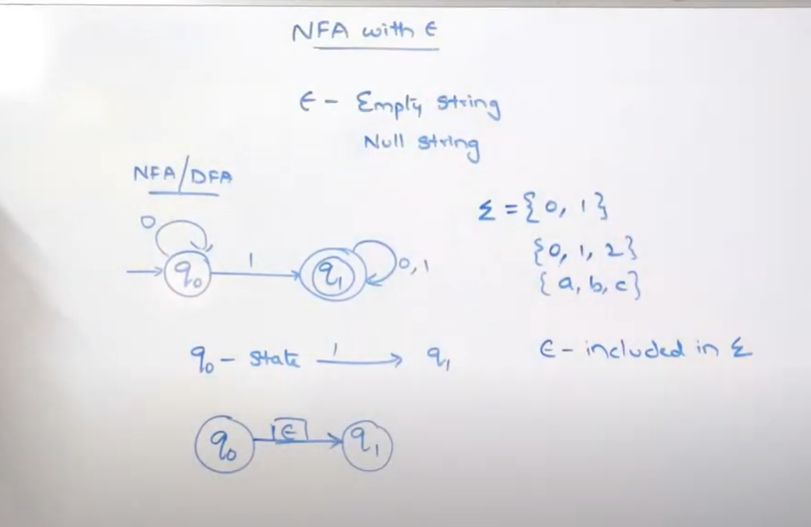 NFA with ϵ
ϵ - Empty string
Null string
NFA/DFA
Σ = {0, 1}
{0, 1, 2}
{a, b, c}
0
1
0, 1
q₀
q₁
q₀ - state 1 → q₁
ϵ - included in Σ
q₀
ϵ
q₁